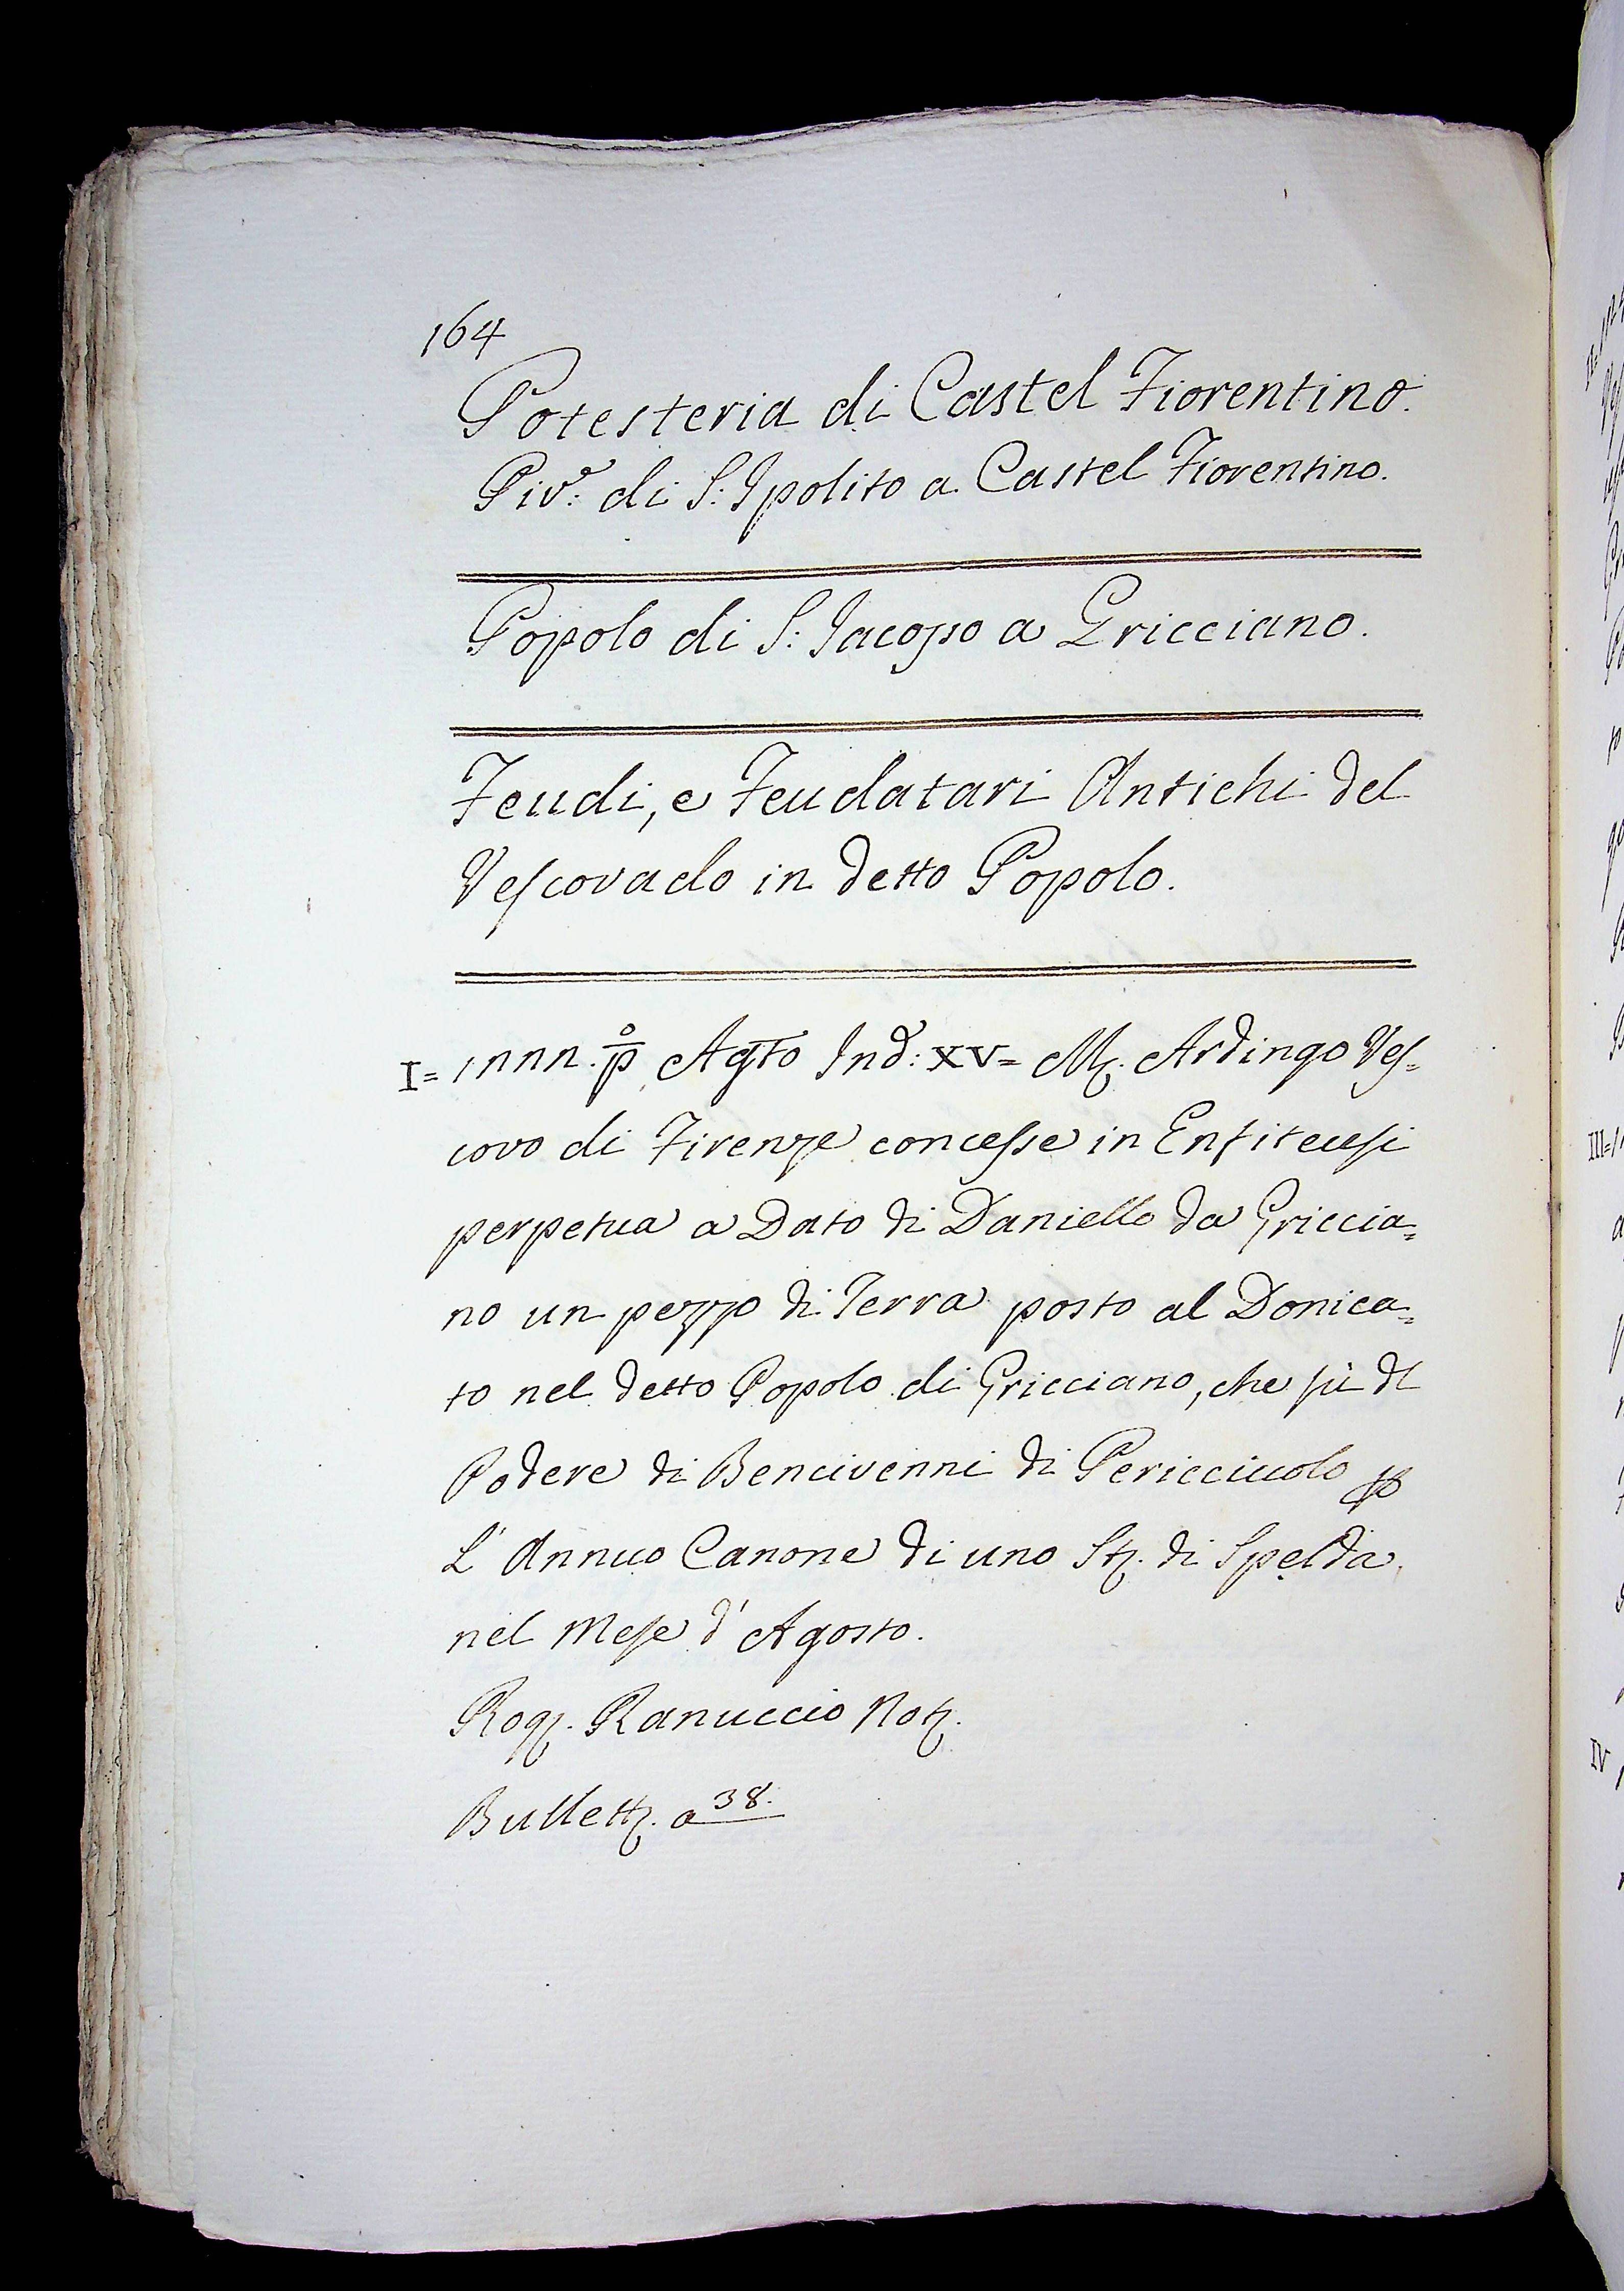 164
Potesteria di Castel Fiorentino.
Piv.º di S: Ipolito a Castel Fiorentino.
Popolo di S: Jacopo a Gricciano.
Feudi, e Feudatari Antichi del
Vescovado in detto Popolo.
I= 1nnn. p.º Agto Ind: XV= M. Ardingo Ves=
covo di Firenze concesse in Enfiteusi
perpetua a Dato di Daniello da Griccia=
no un pezzo di Terra posto al Donica=
to nel detto Popolo di Gricciano, che fù dl
Podere di Bencivenni di Pericciuolo p
L'Annuo Canone di uno St. di Spelda
nel Mese d'Agosto.
Rog. Ranuccio Not.
Bullett. a 38.